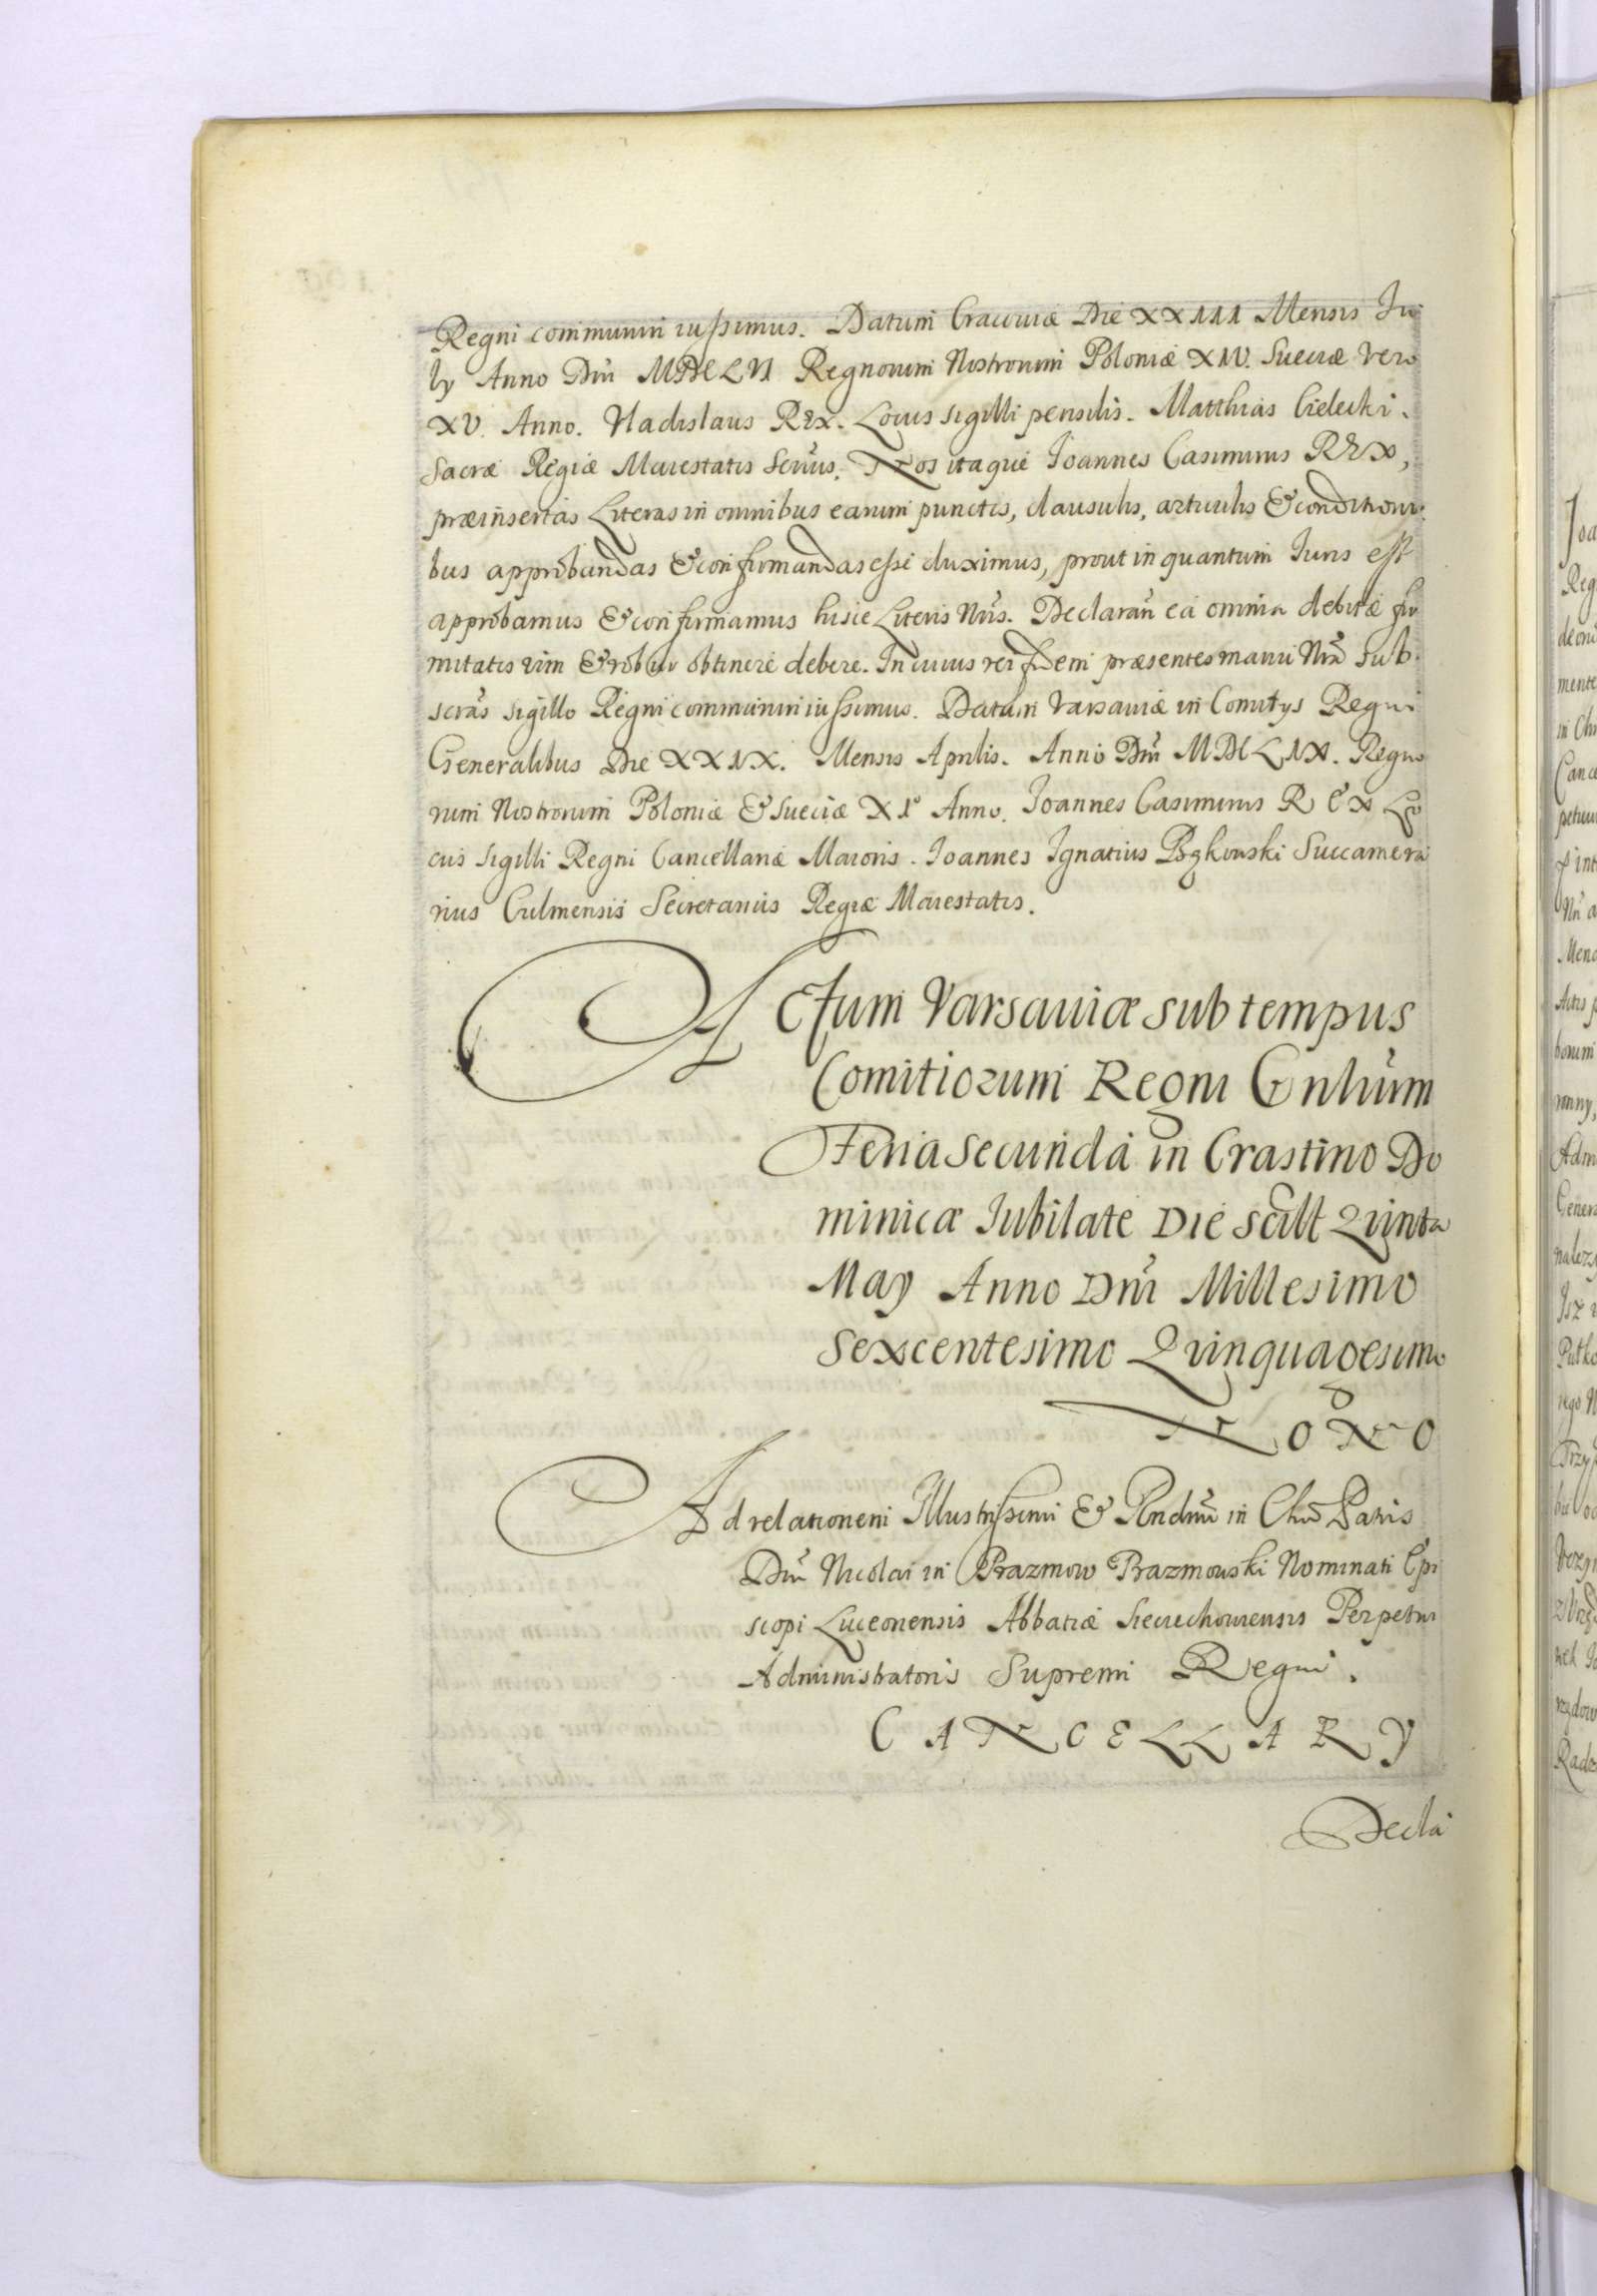 Regni communiri iussimus. Datum Cracoviæ Die XXIII Mensis Iu
ly Anno Dni MDCLVI Regnorum Nostrorum Poloniæ XIV. Sueciæ vero
XV. Anno. Vladislaus Rex. Locus sigilli pensilis. Matthias Cielecki.
Sacræ Regiæ Maiestatis Scrius. Nos itaque Ioannes Casimirus REX,
præinsertas Literas in omnibus earum punctis, clausulis, articulis & conditioni
bus approbandas & confirmandas esse duximus, prout in quantum Iuris est
approbamus & confirmamus hisce Literis Nris. Declaran ea omnia debitæ fir
mitatis vim & robur obtinere debere. In cuius rei fidem præsentes manu Nra sub
scras sigillo Regni communiri iussimus. Datum Varsaviæ in Comitys Regni
Generalibus Die XXIX. Mensis Aprilis. Anno Dni MDCLIX. Regno
rum Nostrorum Poloniæ & Sueciæ XI° Anno. Ioannes Casimirus REX Lo
cus Sigilli Regni Cancellariæ Maioris. Ioannes Ignatius Bąkowski Succamera
rius Culmensis Secretarius Regiæ Maiestatis.
Actum Varsaviæ sub tempus
Comitiorum Regni Gnlium
Feria secunda in Crastino Do
minicæ Iubilate Die scilt Quinta
May Anno Dni Millesimo
Sexcentesimo Quinquagesimo
NONO
Ad relationem Illustrissimi & Rndmi in Chro Patris
Dni Nicolai in Prazmow Prazmowski Nominati Epi
scopi Luceonensis Abbatiæ Sieciechoviensis Perpetui
Administratoris Supremi Regni.
CANCELLARY
Decla